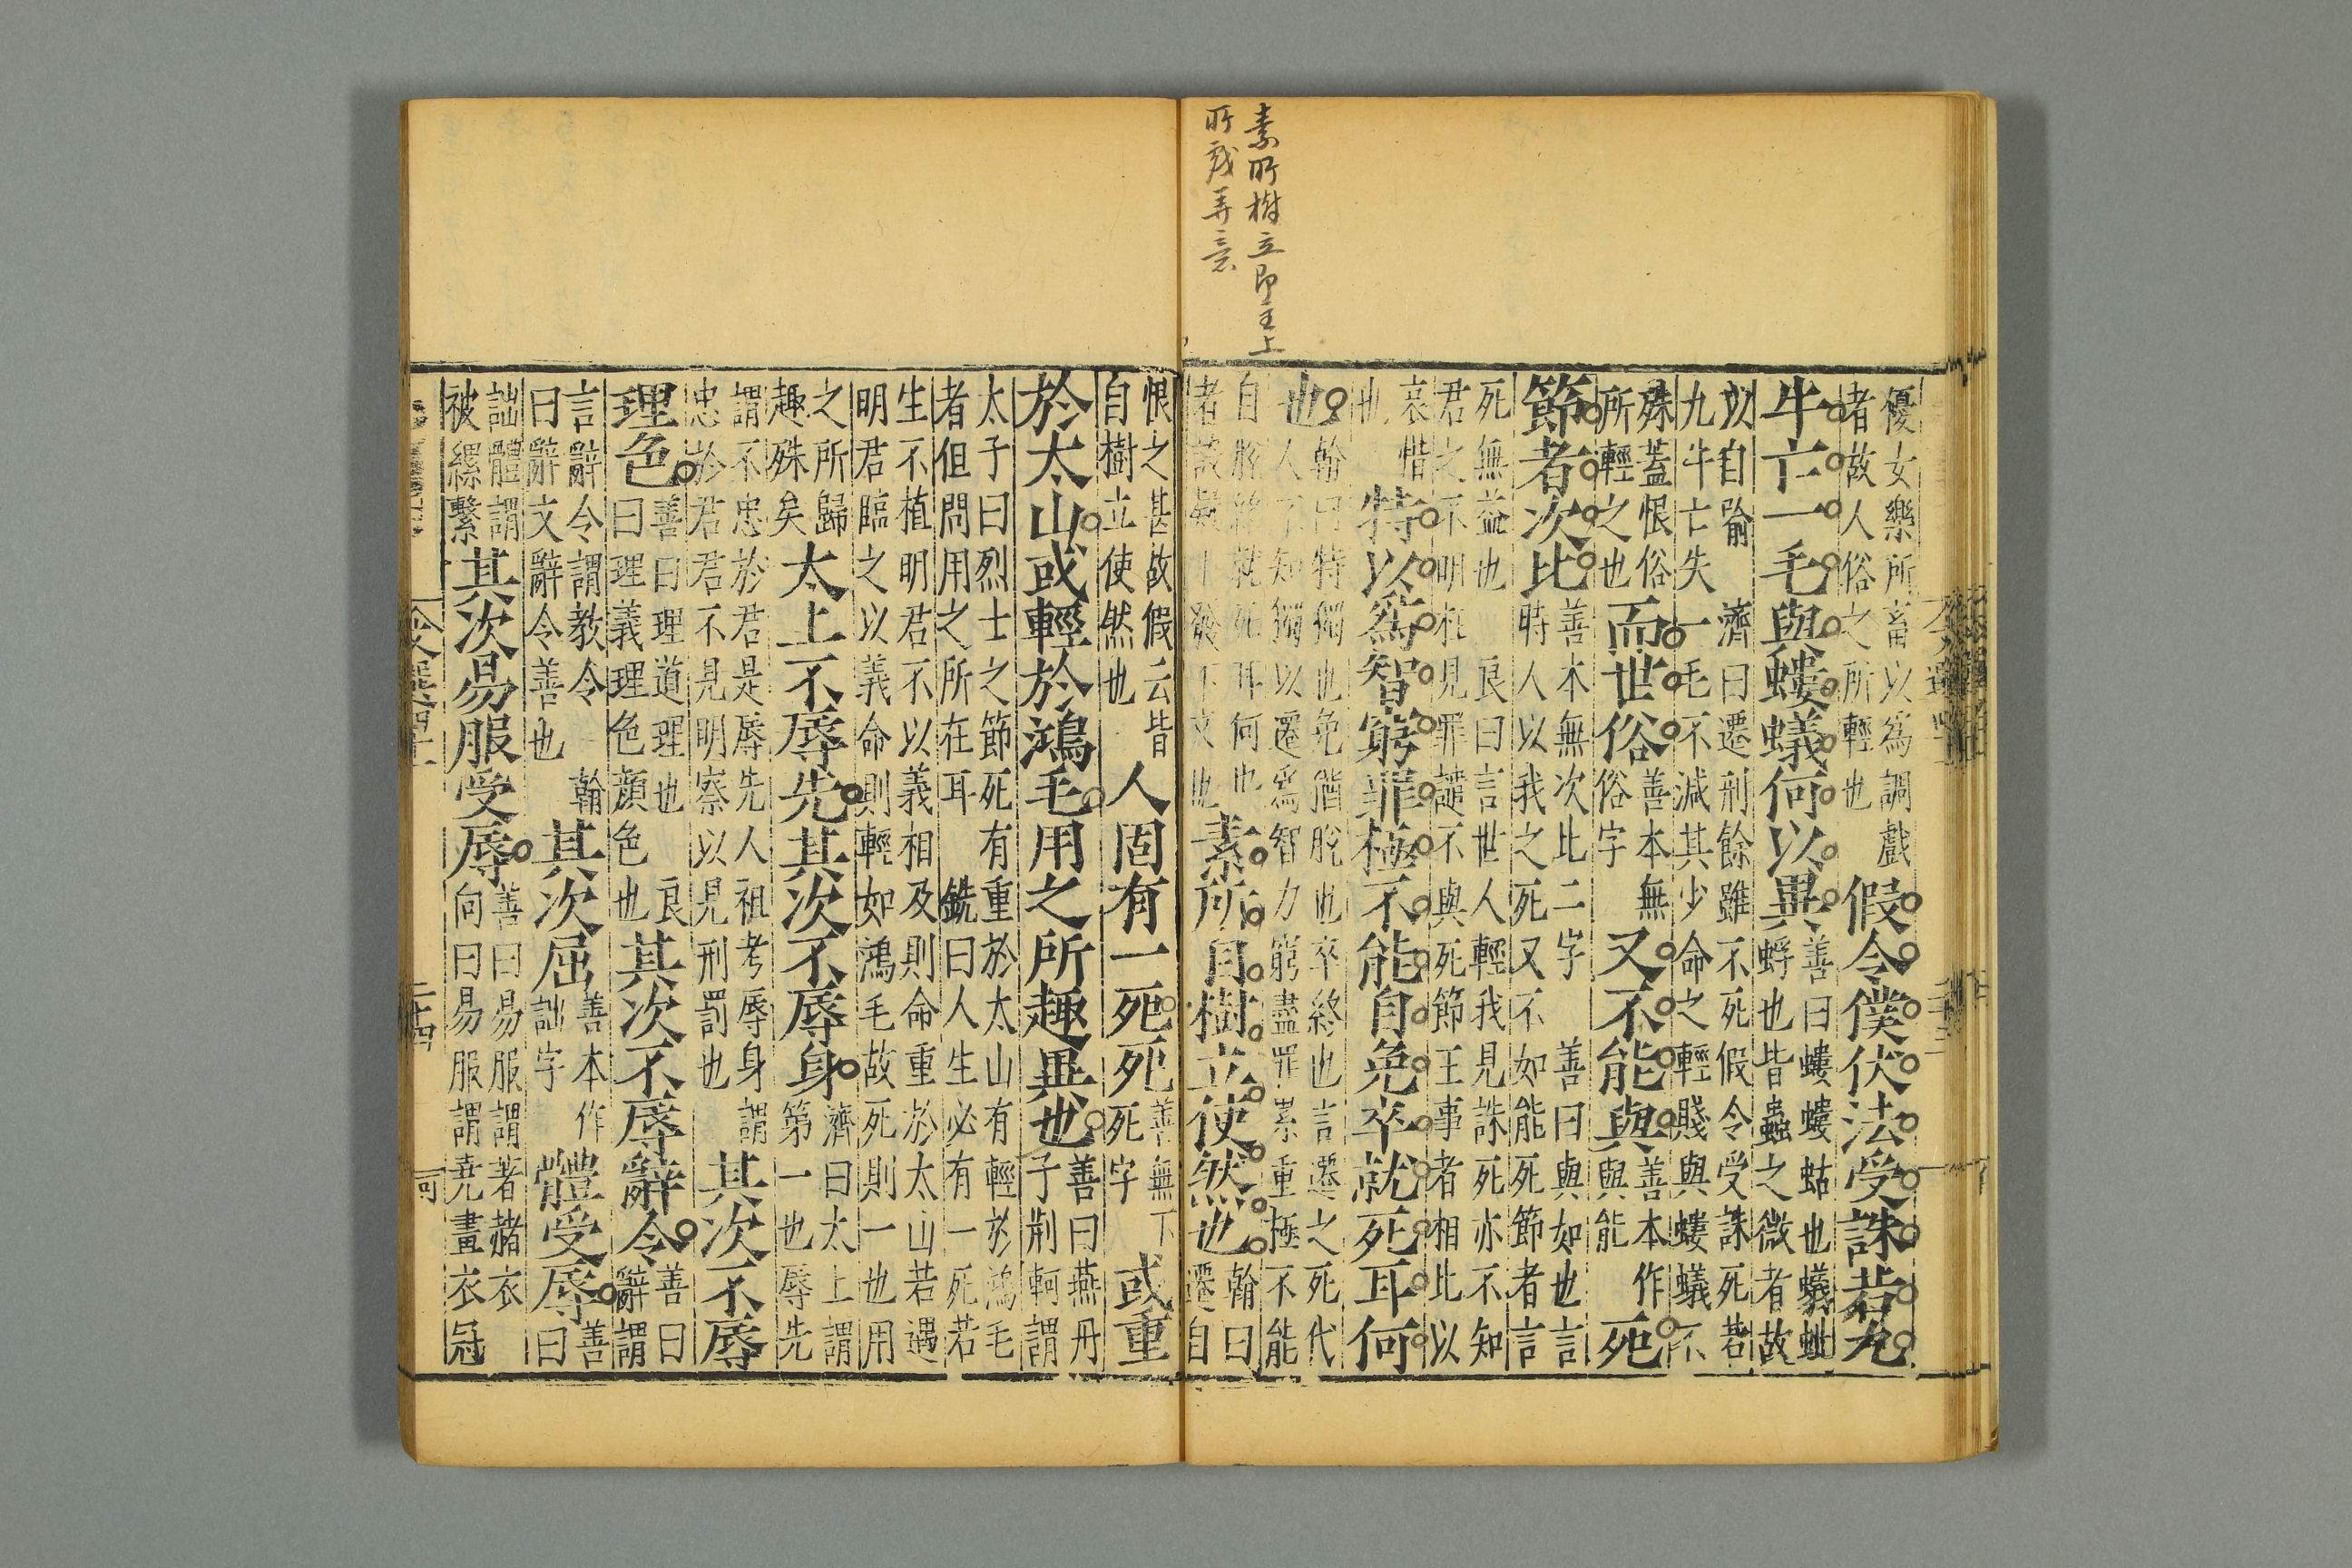 素所樹立即主上
所戲弄意
優女樂所畜以為調戲者故人俗之所輕也假令僕伏法受誅若九
牛亡一毛與螻蟻何以異善曰螻螻蛄也蟻蚍蜉也皆蟲之微者故
以自喻濟曰遷刑餘雖不死假令受誅死若九牛亡失一毛不減其少命之輕賤與螻蟻不
殊蓋恨俗所輕之也而世俗善本無俗字又不能與善本作與能死
節者次比善本無次比二字善曰與如也言時人以我之死又不如能死節者言
死無益也良曰言世人輕我見誅死亦不知君之不明枉見罪譴不與死節王事者相比以
哀惜也特以為智窮罪極不能自免卒就死耳何
也翰曰特獨也免猶脫也卒終也言遷之死代人不知獨以遷為智力窮盡罪累重極不能
自脫終就死耳何也者設疑以發下文也素所自樹立使然也翰曰遷自
恨之甚故假云皆自樹立使然也人固有一死死善無下死字或重
於太山或輕於鴻毛用之所趣異也善曰燕丹子荆軻謂
太子曰烈士之節死有重於太山有輕於鴻毛者但問用之所在耳銑曰人生必有一死若
生不植明君不以義相及則命重於太山若遇明君臨之以義命則輕如鴻毛故死則一也用
之所歸趣殊矣太上不辱先其次不辱身濟曰太上謂第一也辱先
謂不忠於君是辱先人祖考辱身謂忠於君君不見明察以見刑罰也其次不辱
理色善曰理道理也良曰理義理色顏色也其次不辱辭令善曰辭謂
言辭令謂教令翰曰辭文辭令善也其次屈善本作詘字體受辱善曰
詘體謂被縲繫其次易服受辱善曰易服謂著赭衣向曰易服謂堯畫衣冠
二十四